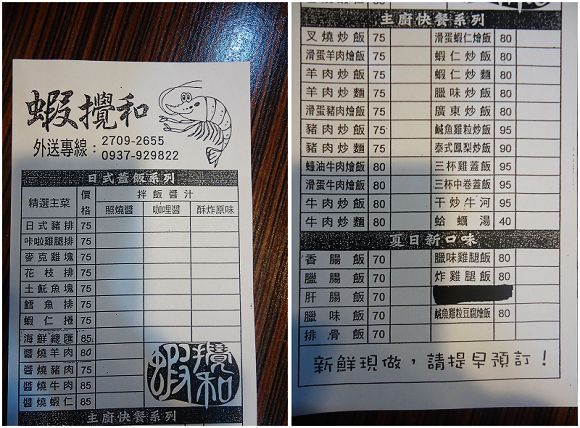 蝦攪和
外送專線：2709-2655
0937-929822
日式蓋飯系列
精選主菜 價格 拌飯醬汁
照燒醬 咖哩醬 酥炸原味
日式豬排 75
咔啦雞腿排 75
麥克雞塊 75
花枝排 75
土魠魚塊 75
鱈魚排 75
蝦仁捲 75
海鮮總匯 85
醬燒羊肉 80
醬燒豬肉 75
醬燒牛肉 85
醬燒蝦仁 85
蝦攪和
主廚快餐系列
主廚快餐系列
叉燒炒飯 75 滑蛋蝦仁燴飯 80
滑蛋羊肉燴飯 75 蝦仁炒飯 80
羊肉炒飯 75 蝦仁炒麵 80
羊肉炒麵 75 臘味炒飯 80
滑蛋豬肉燴飯 75 廣東炒飯 80
豬肉炒飯 75 鹹魚雞粒炒飯 95
豬肉炒麵 75 泰式鳳梨炒飯 90
蠔油牛肉燴飯 80 三杯雞蓋飯 95
滑蛋牛肉燴飯 80 三杯中卷蓋飯 95
牛肉炒飯 80 干炒牛河 95
牛肉炒麵 80 蛤蠣湯 40
夏日新口味
香腸飯 70 臘味雞腿飯 80
臘腸飯 70 炸雞腿飯 80
肝腸飯 70
臘味飯 70 鹹魚雞粒豆腐燴飯 80
排骨飯 70
新鮮現做，請提早預訂！